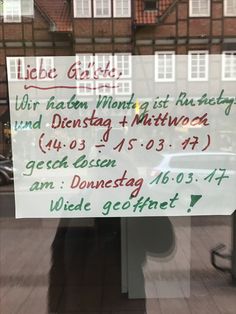 Liebe Gäste,
Wir haben Montag ist Ruhetag
und Dienstag + Mittwoch
(14.03 ÷ 15.03.17)
geschlossen
am: Donnestag 16.03.17
Wiede geöffnet !